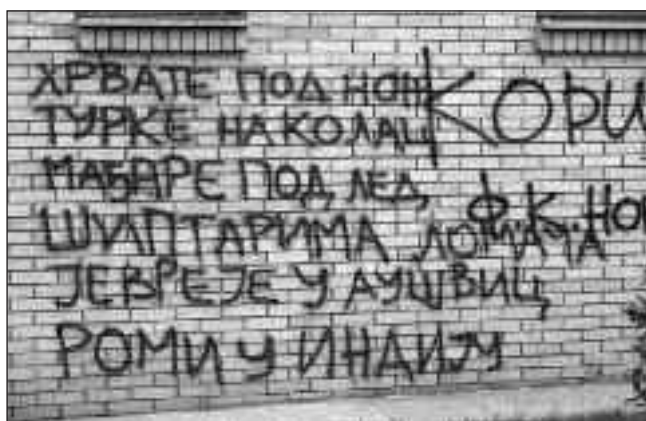 ХРВАТЕ ПОД НОЖ
ТУРКЕ НА КОЛАЦ
МАЂАРЕ ПОД ЛЕД
ШИПТАРИМА ЛОМАЧА
ЈЕВРЕЈЕ У АУШВИЦ
РОМИ У ИНДИЈУ
КОРИ
Ф.К. НОВ